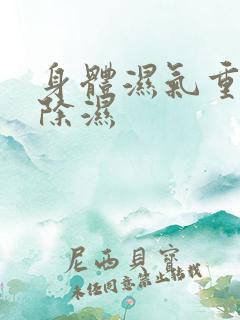 身體濕氣重
除濕
尼西貝寶
未经同意禁止搭载